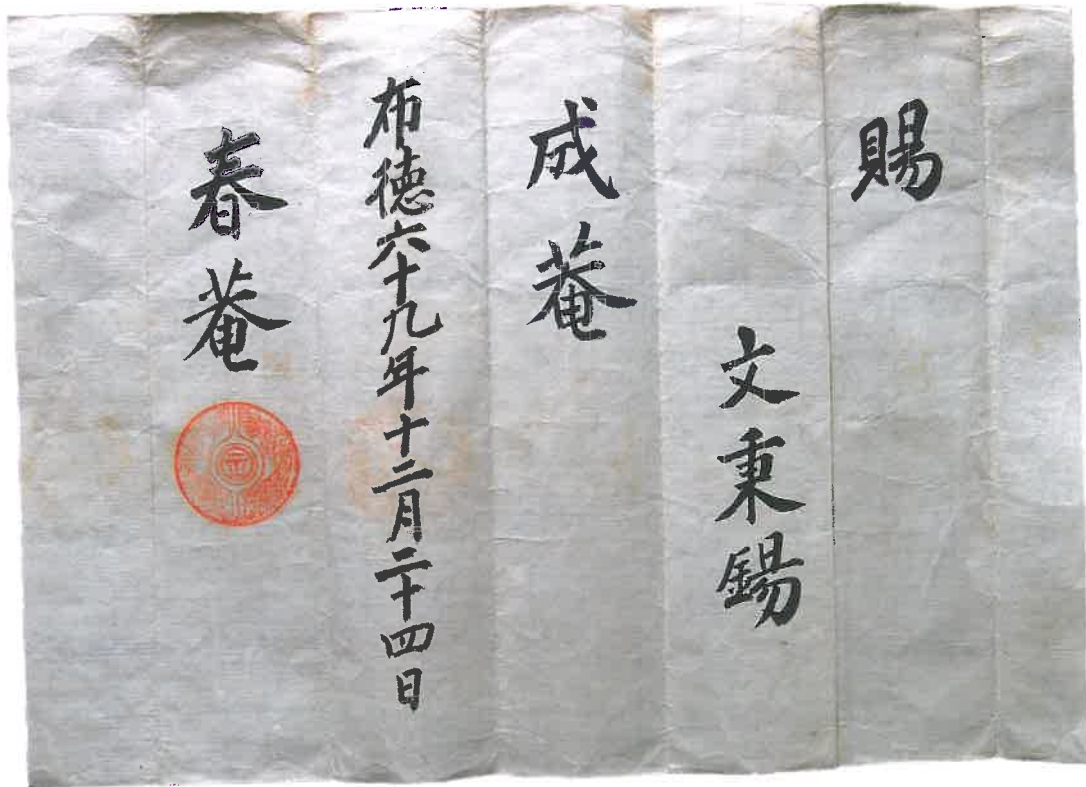 賜
文秉錫
成菴
布德六十九年十二月二十四日
春菴